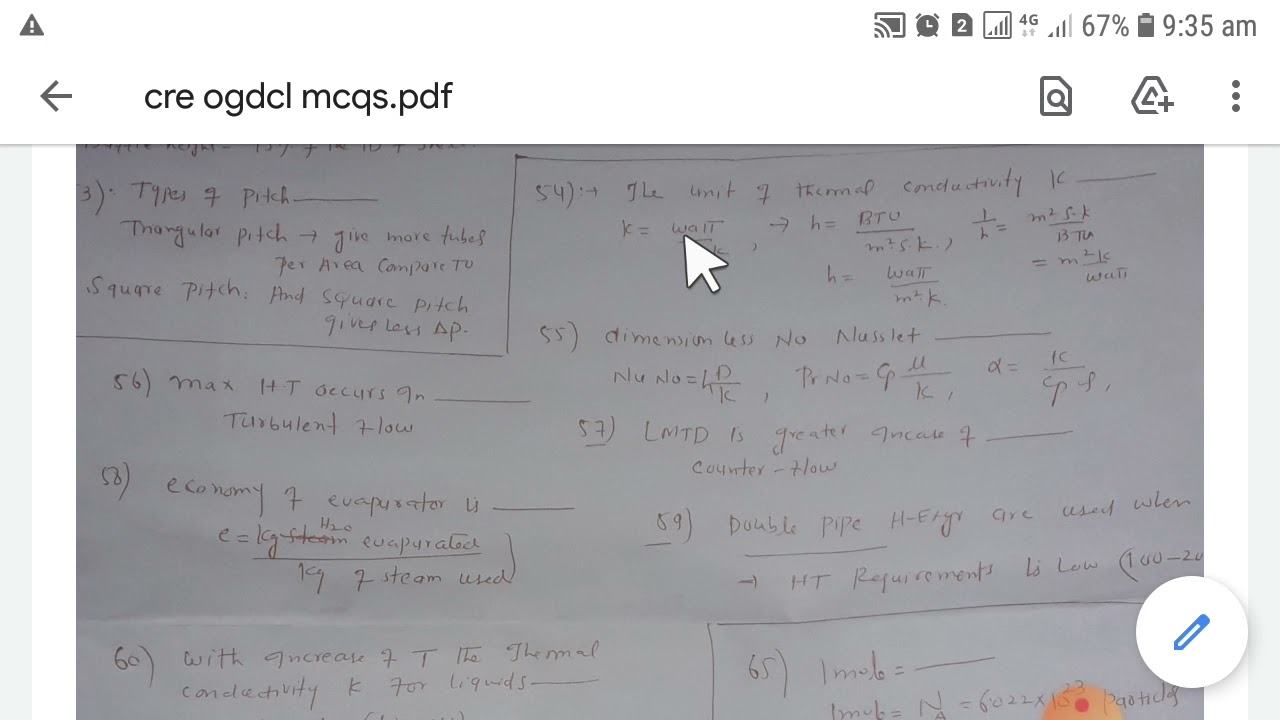 67% 9:35 am
cre ogdcl mcqs.pdf
3): Types of pitch
Triangular pitch → give more tubes
Per Area Compare To
Square Pitch. And square pitch
gives less ΔP.
54):→ The unit of thermal conductivity K
K = watt , → h = BTU / m² S.K. , 1/h = m² S.K / BTU
h = watt / m².K. = m² K / watt
55) dimension less No Nusslet
Nu No = h D/K , Pr No = Cp μ/K , α = K / Cp ρ ,
56) max H.T occurs In
Turbulent Flow
57) LMTD Is greater Incase of
Counter-Flow
58) economy of evaporator is
e = kg H2O evaporated / Kg of steam used
59) Double Pipe H-Exgr are used when
→ HT Requirements Is Low (100-20
60) with Increase of T the Thermal
conductivity K For liquids
65) 1 mole =
1 mole = NA = 6.022 x 10²³ particles